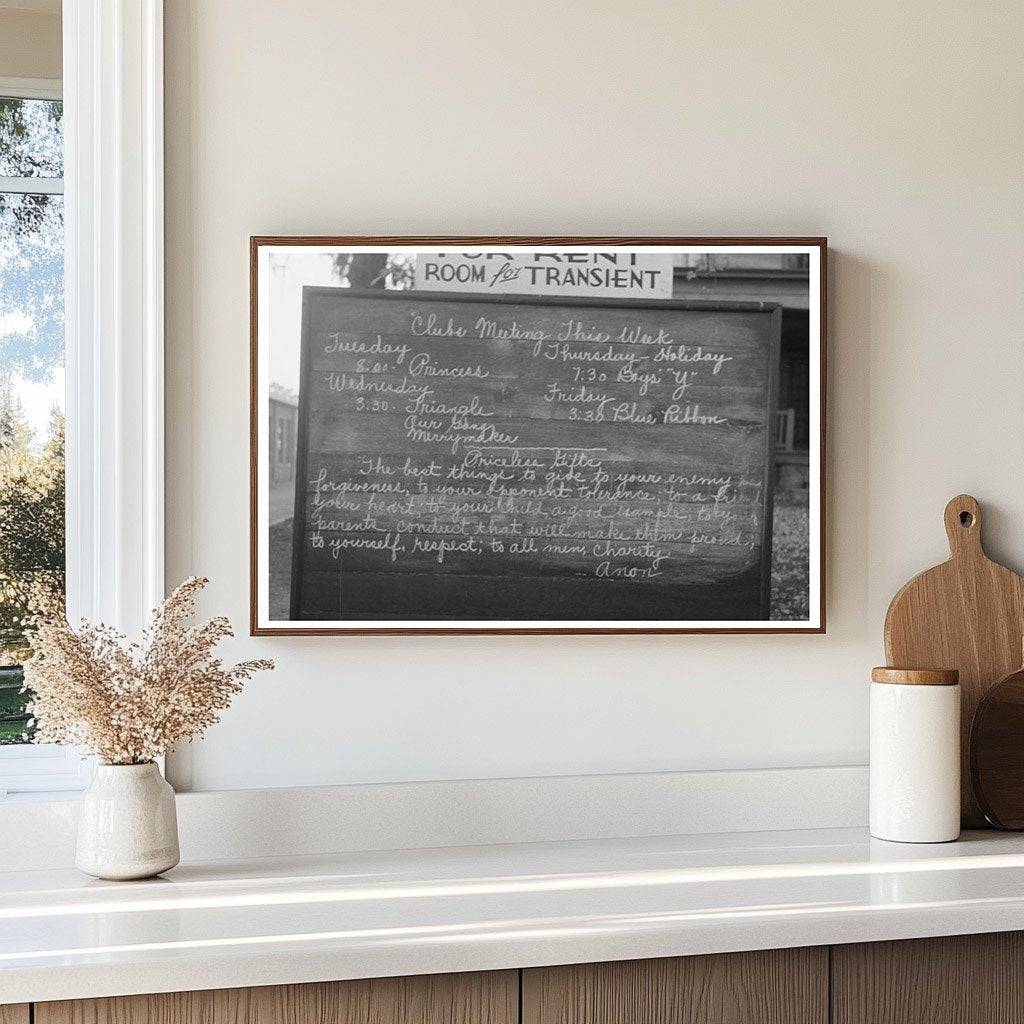 FOR RENT
ROOM for TRANSIENT
Clubs Meeting This Week
Tuesday
8:00 - Princess
Wednesday
3:30 - Triangle
Our Gang
Merrymaker
Thursday - Holiday
7:30 Boys' "Y"
Friday
3:30 Blue Ribbon
Priceless Gifts
The best things to give to your enemy is
forgiveness, to your opponent tolerance; to a
your heart; to your child, a good example; to
parents conduct that will make them proud;
to yourself, respect; to all men, charity
- Anon